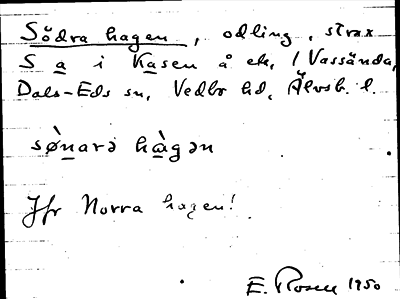 Södra hagen, odling, strax
S a i Kasen å ek. 1 Vassända,
Dals-Eds sn, Vedbo hd, Älvsb. l.
sø̀narə hàgən
Jfr Norra hagen!
E. Rosell 1950